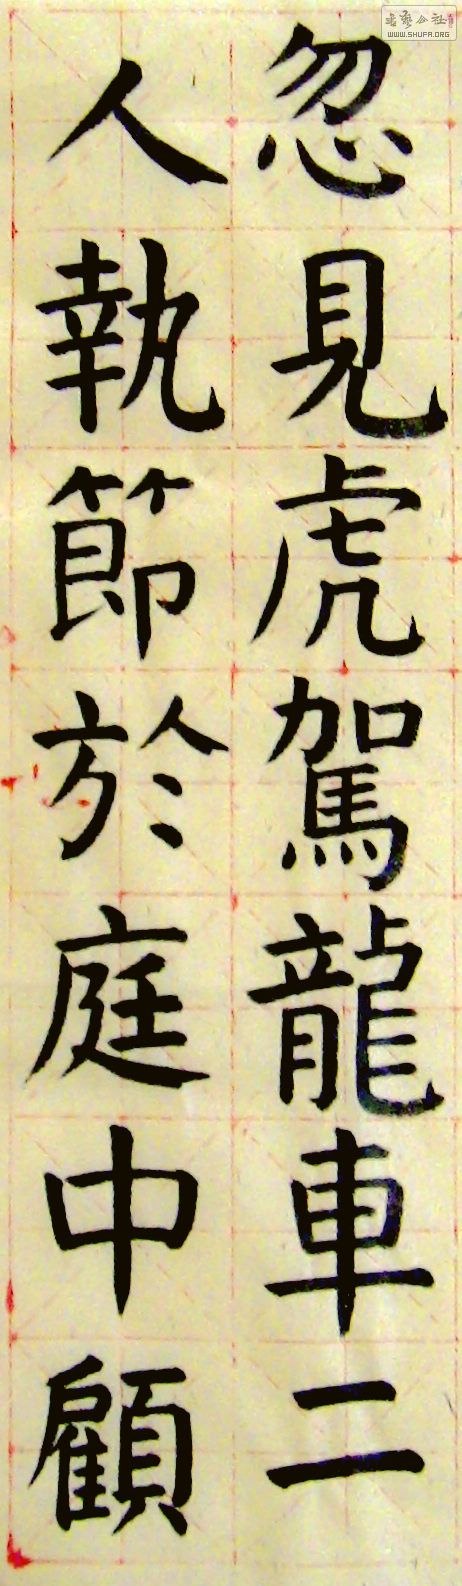 忽見虎駕龍車二
人執節於庭中顧
WWW.SHUFA.ORG